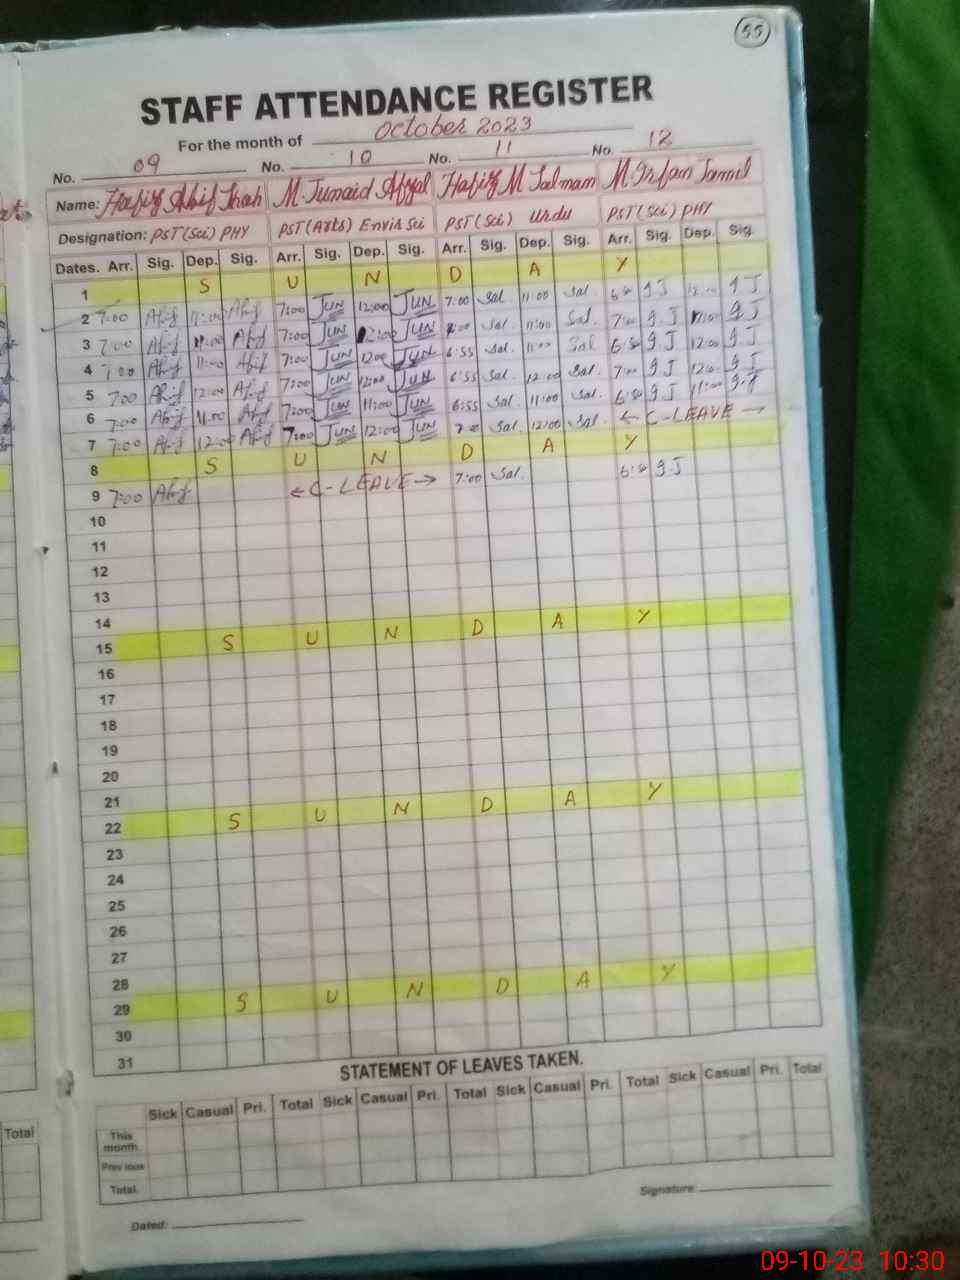 55
STAFF ATTENDANCE REGISTER
For the month of October 2023
No. 09 No. 10 No. 11 No. 12
Name: Hafiz M. Junaid Afzal Hafiz M Salman M. Irfan Jamil
Designation: PST (Sci) PHY PST (Arts) Envir Sci PST (Sci) Urdu PST (Sci) PHY
Dates. Arr. Sig. Dep. Sig. Arr. Sig. Dep. Sig. Arr. Sig. Dep. Sig. Arr. Sig. Dep. Sig.
1 S U N D A Y
2 7:00 7:00 JUN 12:00 JUN 7:00 Sal 11:00 Sal g J g J
3 7:00 7:00 JUN JUN Sal 11:00 Sal. 7:00 g J g J
4 11:00 7:00 JUN JUN 6:55 Sal. Sal g J 12:00 g J
5 7:00 12:00 7:00 JUN 12:00 JUN 6:55 Sal 12:00 Sal. 7:00 g J g J
6 7:00 11:00 7:00 JUN 11:00 JUN 6:55 Sal 11:00 Sal. g J g.J
7 7:00 12:00 7:00 JUN 12:00 JUN Sal. 12:00 Sal. ← C-LEAVE →
8 S U N D A Y
9 7:00 ← C-LEAVE → 7:00 Sal. g J
10
11
12
13
14
15 S U N D A Y
16
17
18
19
20
21
22 S U N D A Y
23
24
25
26
27
28
29 S U N D A Y
30
31
STATEMENT OF LEAVES TAKEN.
Sick Casual Pri. Total Sick Casual Pri. Total Sick Casual Pri. Total Sick Casual Pri. Total
This month
Total.
Dated: Signature
Total
09-10-23 10:30